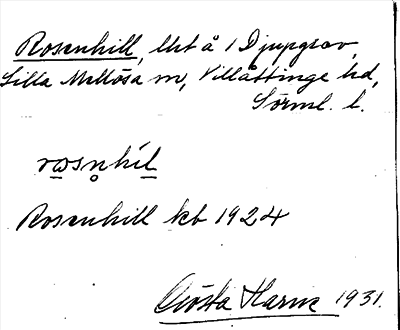 Rosenhill, lht å 1 Djupgrav,
Lilla Mellösa sn, Villåttinge hd,
Sörml. l.
Rosenhill kb 1924
Gösta Harne 1931.